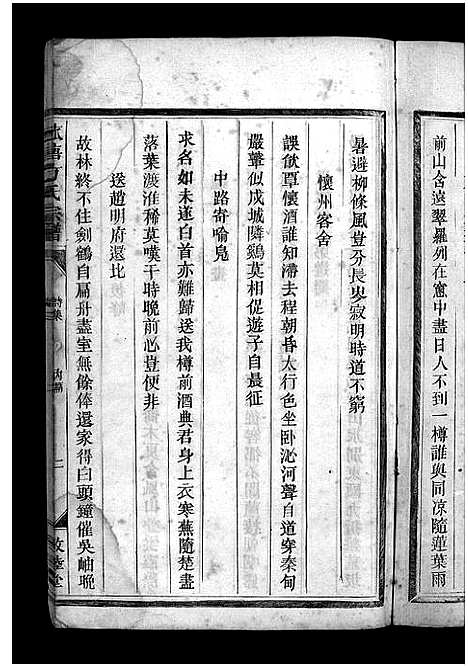 前山含遠翠羅列在窻中盡日人不到一樽誰與同凉隨蓮葉雨
暑避柳條風豈分長岑寂明時道不窮
懷州客舍
誤飲覃懷酒誰知滯去程朝昏太行色坐卧沁河聲自道穿秦甸
嚴鼙似戍城隣鷄莫相促遊子自晨征
中路寄喻鳧
求名如未遂白首亦難歸送我樽前酒典君身上衣寒蕪隨楚盡
落葉渡淮稀莫嘆干時晚前心豈便非
送趙明府還北
故林終不住劍鶴自扁舟盡室無餘俸還家得白頭鐘催吳岫晚
方氏宗譜
詩集
內編
二
敦睦堂